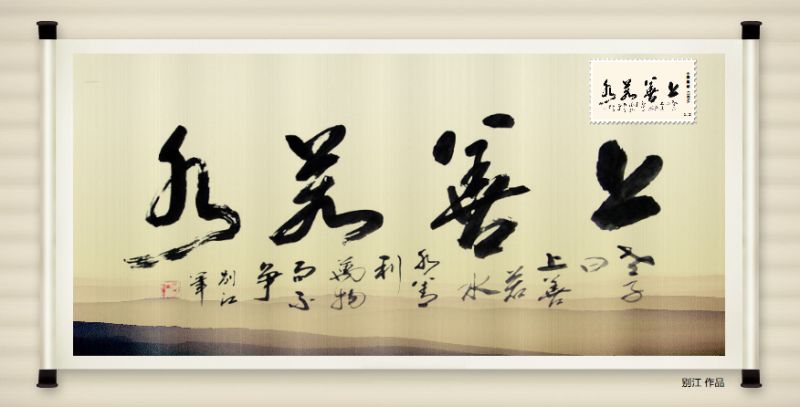 上善若水
老子
曰
上善
若
水
水善
利
萬物
而不
争
別江
筆
上善若水
別江 作品